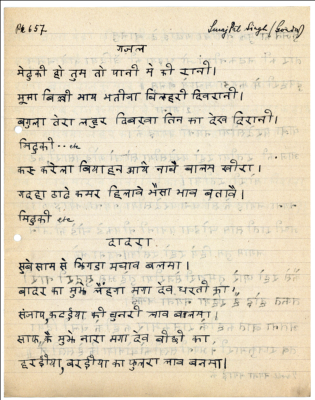 PK 657. Suraj Pal Singh (Gonda)
गजल
मेढुकी हो तुम तो पानी मे की रानी।
मूसा बिल्ली माय भतीजा बिलहरी दिवरानी।
बगुला तेरा लहुर दिवरवा तिन का देख दिरानी।
मिढुकी .. etc
कस करेला बियाहन आये नाचै बालम खीरा।
गदहा ठाढे कमर हिलावे भैसा भाव बतावै।
मिढुकी etc
दादरा
सुबे साम से झिगड़ा मचाव बलमा।
बादर का मुझे लँहगा मगा देव धरती का,
लगाय, कटइया की चुनरी लाव बलमा।
साफ के मुझे नारा मगा देव बीछी का,
हरइया, बरइया का फुलरा लाव बलमा।